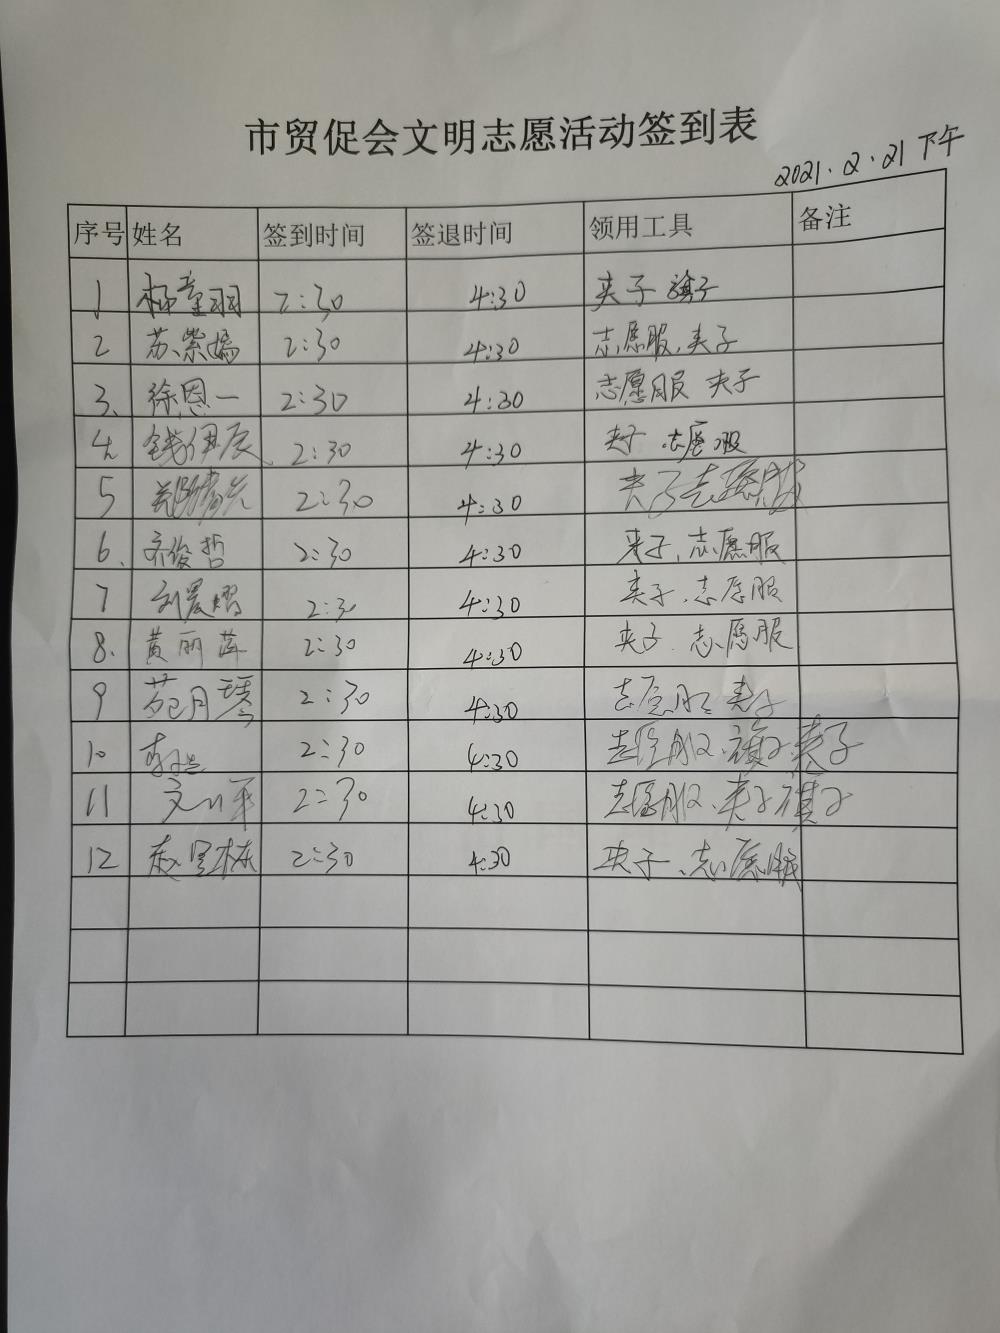 市贸促会文明志愿活动签到表
2021.2.21下午
序号 姓名 签到时间 签退时间 领用工具 备注
1 杨童羽 2:30 4:30 夹子 旗子
2 苏紫嫣 2:30 4:30 志愿服、夹子
3、 徐恩一 2:30 4:30 志愿服 夹子
4、 钱伊辰 2:30 4:30 夹子 志愿服
5 2:30 4:30 夹子志愿服
6、 齐俊哲 2:30 4:30 夹子、志愿服
7 刘宸熠 2:30 4:30 夹子、志愿服
8、 黄丽萍 2:30 4:30 夹子、志愿服
9 范月琴 2:30 4:30 志愿服 夹子
10 2:30 4:30 志愿服、旗子夹子
11 2:30 4:30 志愿服、夹子旗子
12 赵 栋 2:30 4:30 夹子、志愿服